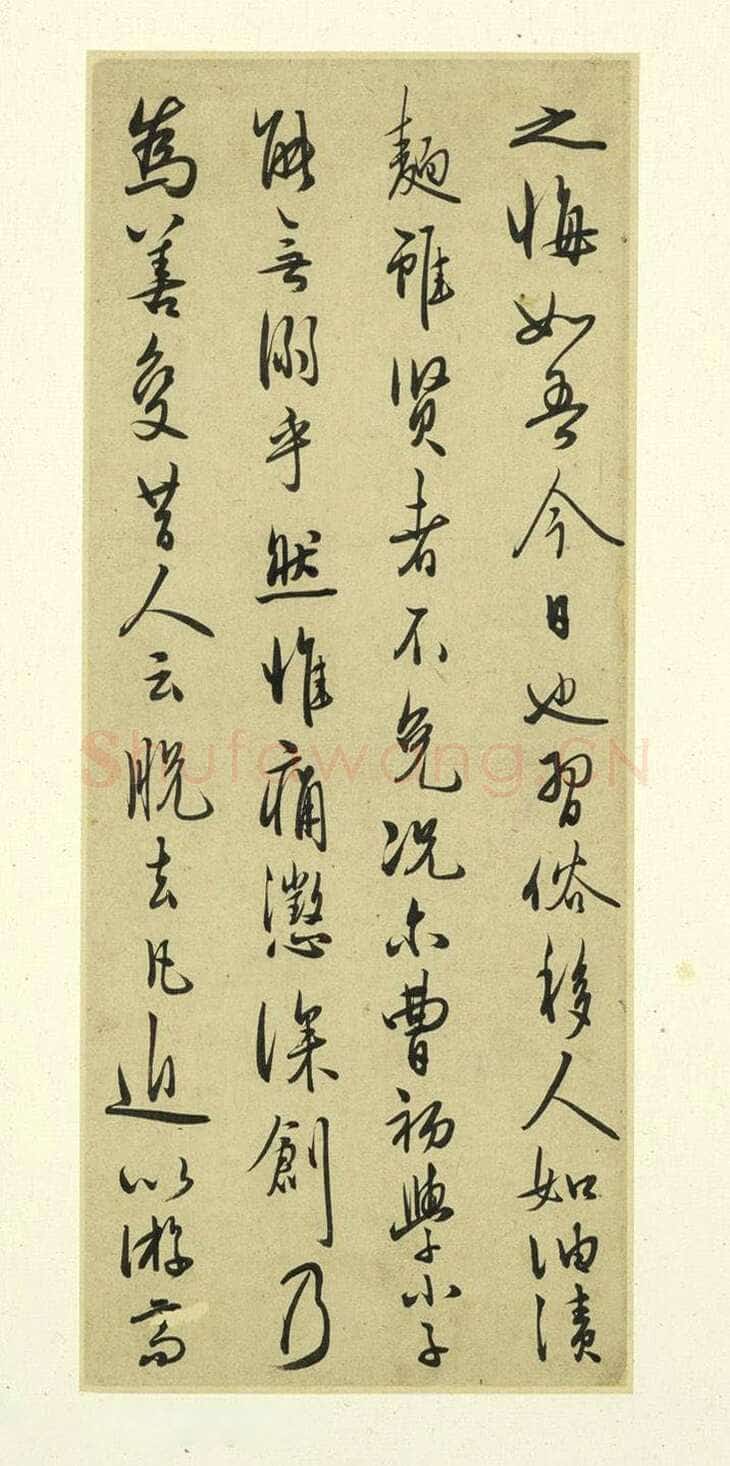 之悔如吾今日也習俗移人如油漬
麵雖賢者不免況尔曹初學小子
能無溺乎然惟痛懲深創乃
為善變昔人云脫去凡近以游高
Shufawang.CN